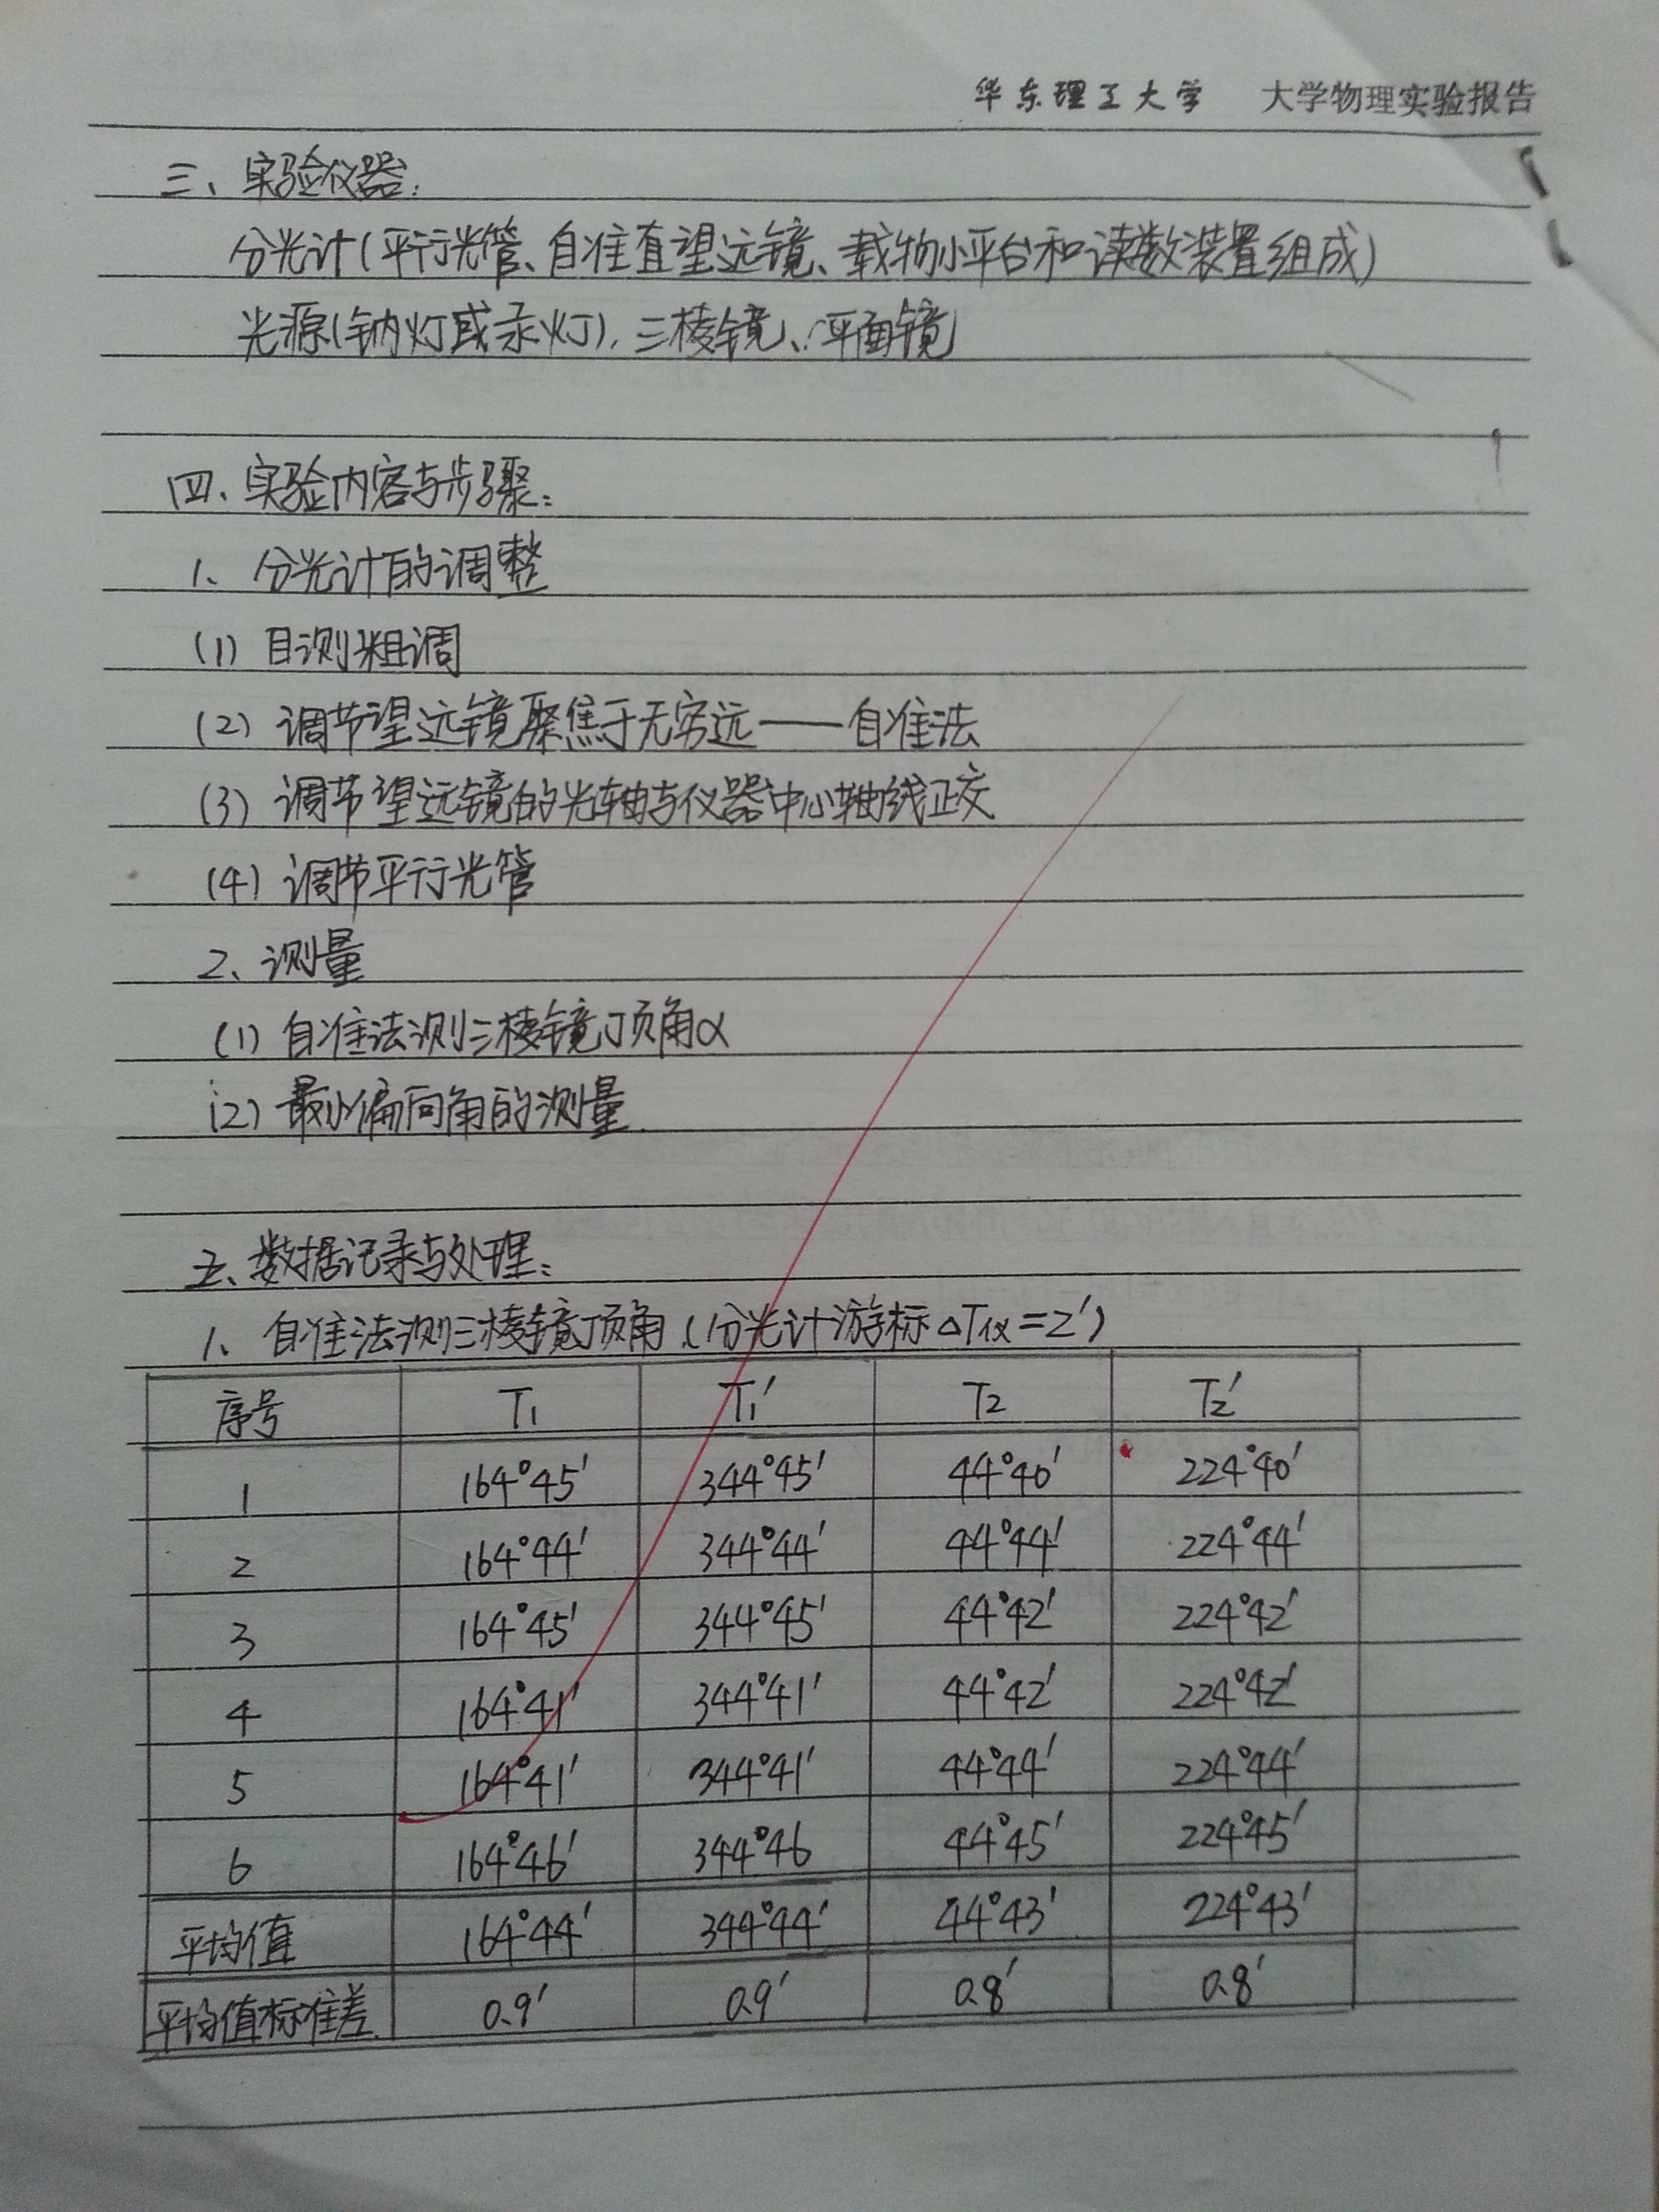 华东理工大学 大学物理实验报告
三、实验仪器:
分光计(平行光管、自准直望远镜、载物小平台和读数装置组成)
光源(钠灯或汞灯)、三棱镜、平面镜
四、实验内容与步骤:
1、分光计的调整
(1) 目测粗调
(2) 调节望远镜聚焦于无穷远——自准法
(3) 调节望远镜的光轴与仪器中心轴线正交
(4) 调节平行光管
2、测量
(1) 自准法测三棱镜顶角α
(2) 最小偏向角的测量.
五、数据记录与处理:
1、自准法测三棱镜顶角(分光计游标ΔT仪=2′)
序号 T₁ T₁′ T₂ T₂′
1 164°45′ 344°45′ 44°40′ 224°40′
2 164°44′ 344°44′ 44°44′ 224°44′
3 164°45′ 344°45′ 44°42′ 224°42′
4 164°41′ 344°41′ 44°42′ 224°42′
5 164°41′ 344°41′ 44°44′ 224°44′
6 164°46′ 344°46 44°45′ 224°45′
平均值 164°44′ 344°44′ 44°43′ 224°43′
平均值标准差 0.9′ 0.9′ 0.8′ 0.8′